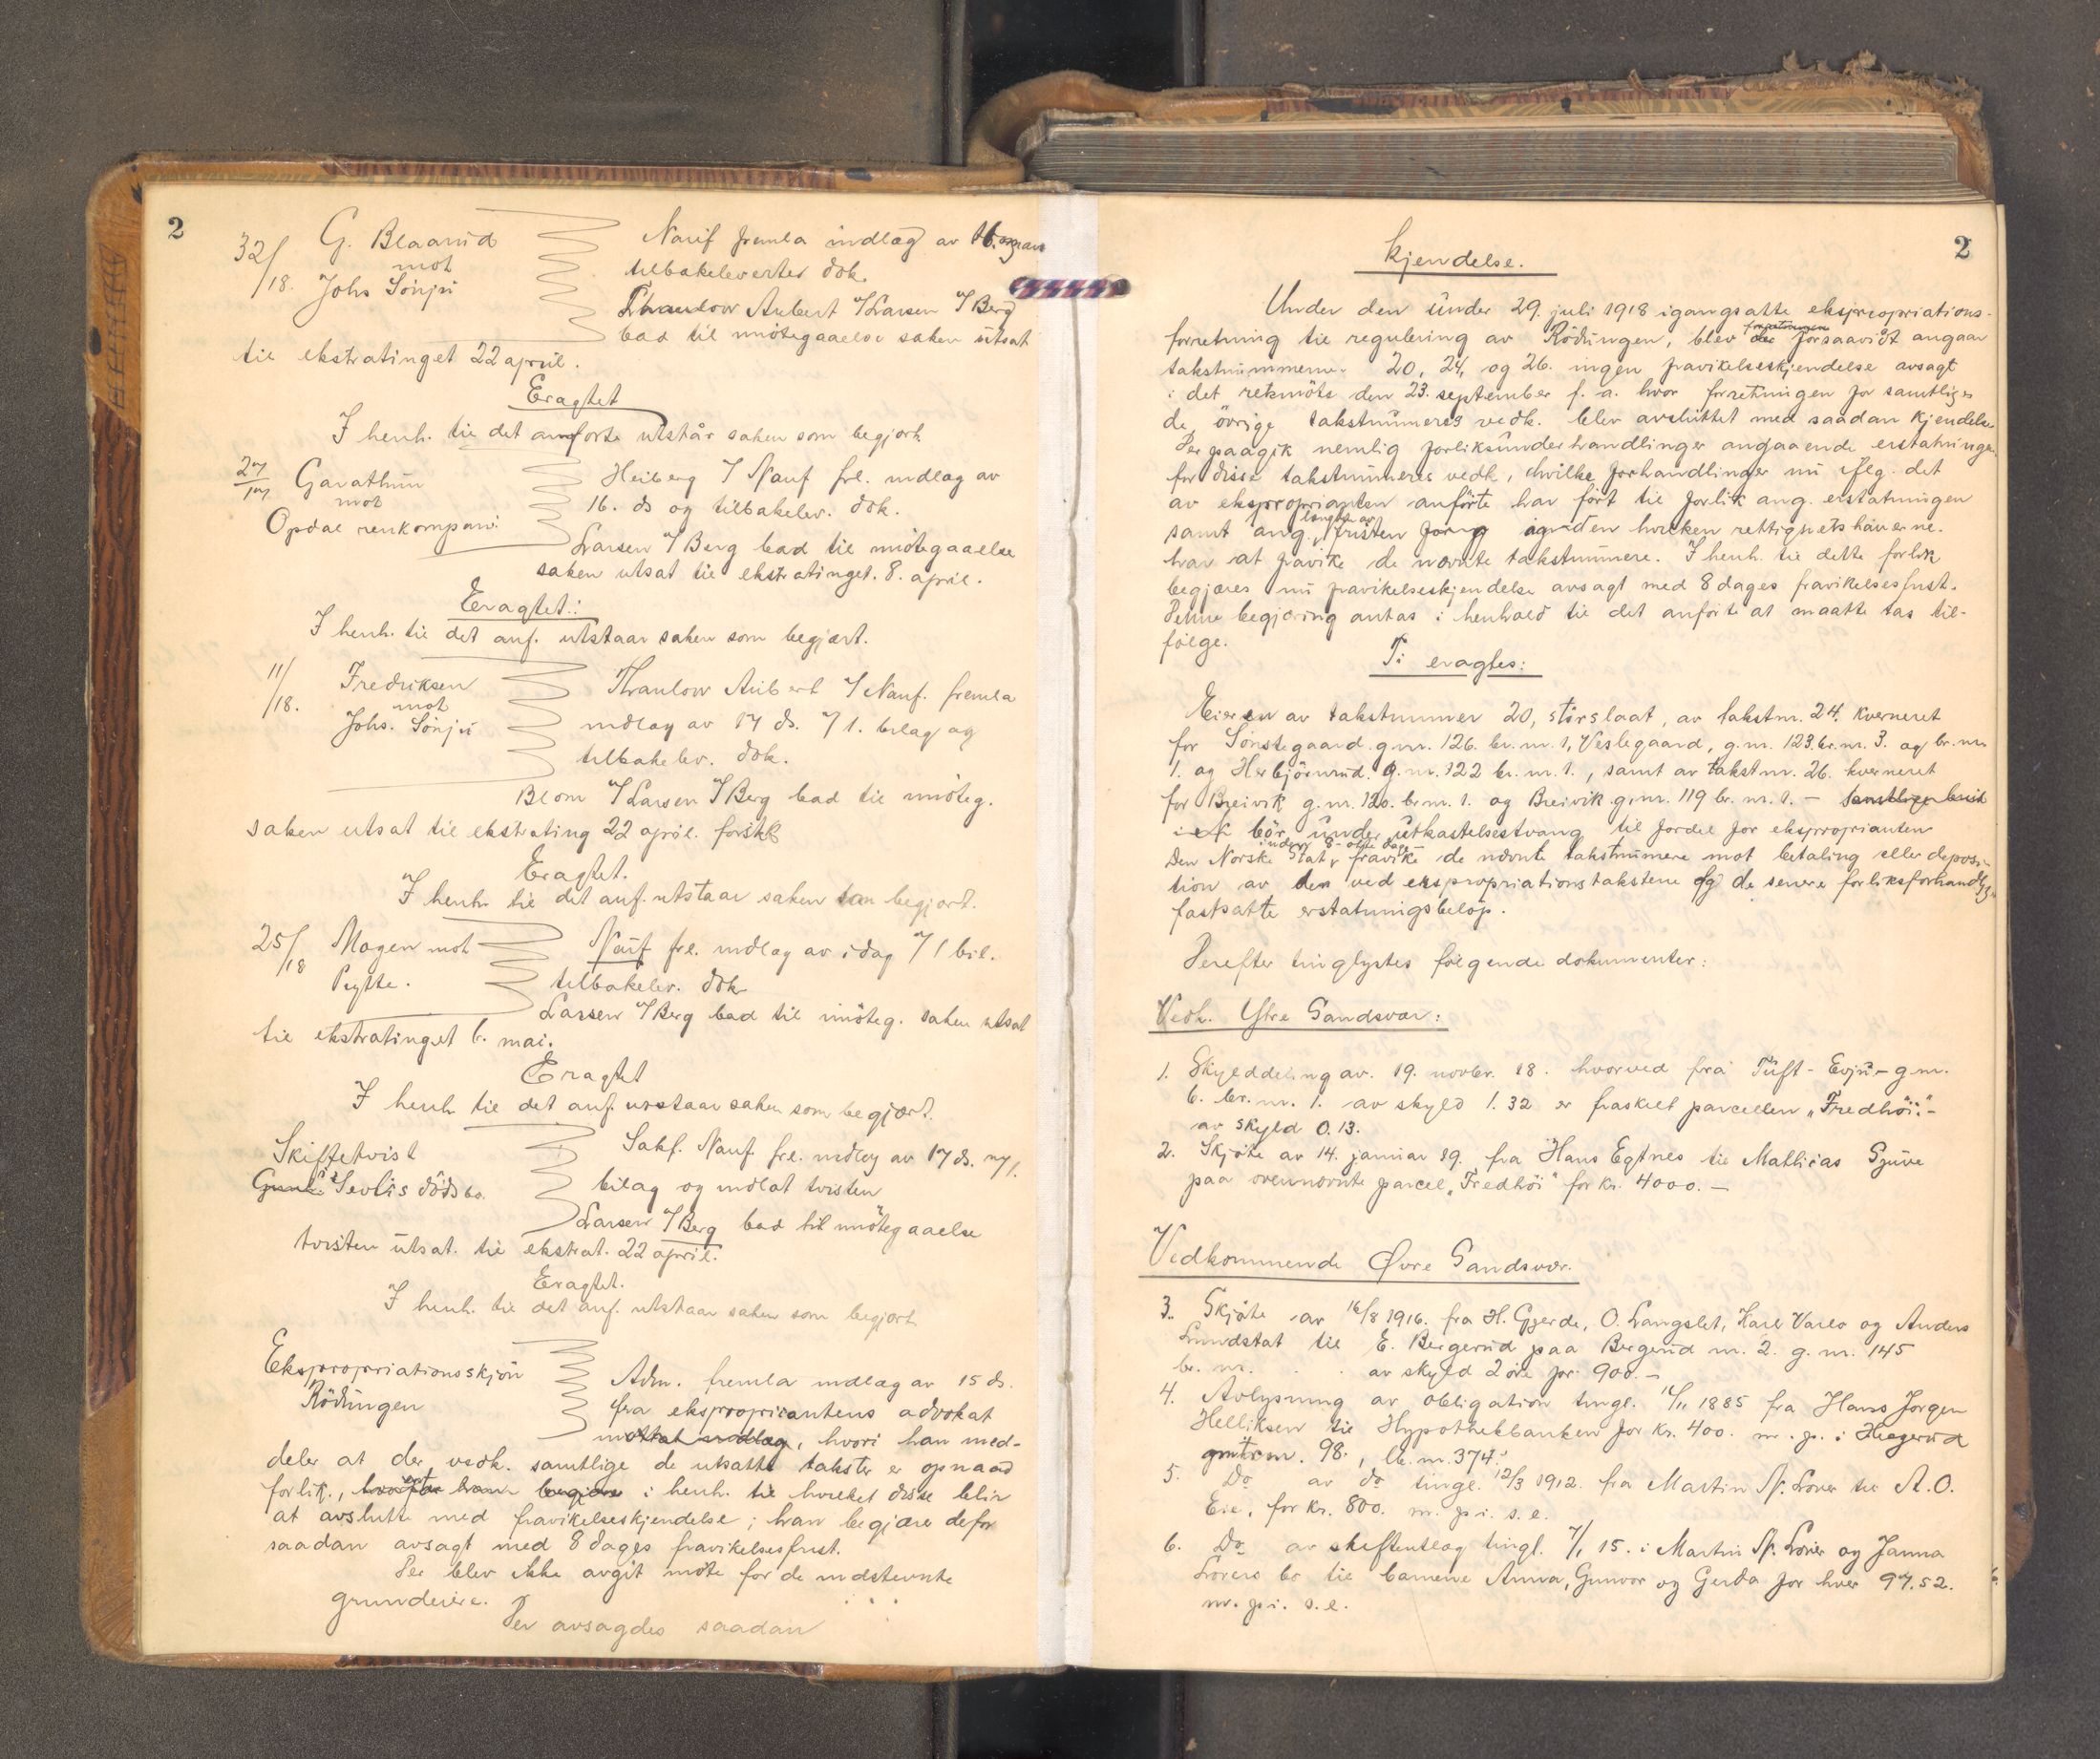 2
32/18. G. Blaarud
mot
Johs Sönju
Nauf fremla indlæg av
tilbakeleverter dok.
Thaulow Aubert v/ Larsen v/ Berg
bad til imötegaaelse saken utsat
til ekstratinget 22 april.
Eragtet
I henh. til det anförte utstår saken som begjært
27/17 Gavathun
mot
Opdal renkompani
Heiberg v/ Nauf frl. indlæg av
16. ds og tilbakelev. dok.
Larsen v/ Berg bad til imötegaaelse
saken utsat til ekstratinget. 8. april.
Eragtet:
I henh. til det anf. utstaar saken som begjært.
11/18. Fredriksen
mot
Johs. Sönju
Thaulow Aubert v/ Nauf. fremla
indlæg av 17 ds. m/ 1. bilag og
tilbakelev. dok.
Blom v/ Larsen v/ Berg bad til imöteg.
saken utsat til ekstrating 22 april.
Eragtet.
I henh. til det anf. utstaar saken som begjært.
25/18 Mogen mot
Pytte.
Nauf frl. indlæg av idag m/ 1 bil.
tilbakelev. dok
Larsen v/ Berg bad til imöteg. saken utsat
til ekstratinget 6. mai.
Eragtet
I henh til det anf. utstaar saken som begjært.
Skiftetvist
dödsbo.
Sakf. Nauf. frl. indlæg av 17 ds. m/ 1.
bilag og indlat tvisten
Larsen v/ Berg bad til imötegaaelse
tvisten utsat. til ekstrat. 22 april.
Eragtet.
I henh. til det anf. utstaar saken som begjært
Ekspropriationsskjön
Rödungen
Adm. fremla indlæg av 15 ds.
fra ekspropriantens advokat
mottat indlæg, hvori han med-
deler at der vedk. samtlige de utsatte takster er opnaad
forlik., i henh. til hvilket disse blir
at avslutte med fravikelseskjendelse; han begjærer defor
saadan avsagt med 8 dages fravikelsesfrist.
Der blev ikke avgit möte for de indstevnte
grundeiere.
Der avsagdes saadan
2
Kjendelse.
Under den under 29. juli 1918 igangsatte ekspropriations-
forretning til regulering av Rödungen, blev forretningen forsaavidt angaar
takstnummerne 20, 24, og 26. ingen fravikelseskjendelse avsagt
i det retsmöte den 23. september f. a. hvor forretningen for samtlige
de övrige takstnumeres vedk. blev avsluttet med saadan kjendelse
Der paagik nemlig forliksunderhandlinger angaaende erstatningen
for disse takstnumeres vedk, hvilke forhandlinger nu iflg. det
av eksproprianten anförte har fört til forlik ang. erstatningen
samt ang. længden av fristen inden hvilken rettighetshaverne
har at fravike de nævnte takstnumere. I henh. til dette forlik
begjæres nu fravikelseskjendelse avsagt med 8 dages fravikelsesfrist.
Denne begjæring antas i henhold til det anförte at maatte tas til-
fölge.
Ti eragtes:
Eieren av takstnummer 20, störslaat, av takstnr. 24. kverneret
for Sönstegaard g.nr. 126. br.nr. 1, Veslegaard, g.nr. 123. br.nr. 3. og br.nr.
1. og Herbjörnrud. g.nr. 122 br.nr. 1., samt av takstnr. 26. kverneret
for Breivik g.nr. 120. br.nr. 1. og Breivik g.nr. 119 br.nr. 1. —
bör under utkastelsestvang til fordel for eksproprianten
Den Norske Stat, inden 8 - otte dage - fravike de nævnte takstnumere mot betaling eller deposi-
tion av den ved ekspropriationstakstene og de senere forliksforhandlinger
fastsatte erstatningsbelöp.
Derefter tinglystes fölgende dokumenter:
Vedk. Ytre Sandsvær:
1. Skylddeling av. 19. novbr. 18. hvorved fra Tuft - Evju - g.nr.
6. br.nr. 1. av skyld 1.32 er fraskilt parcellen „Fredhöi" -
av skyld 0.13.
2. Skjöte av 14. januar 19. fra Hans Egtnes til Mathias Gjuve
paa ovennævnte parcel „Fredhöi" for kr. 4000. —
Vedkommende Övre Sandsvær.
3. Skjöte av 16/8 1916. fra H. Gjerde, O. Langslet, Karl Varlo og Anders
Lundstat til E. Bergerud paa Bergerud nr. 2. g.nr. 145
br.nr. av skyld 2 öre for 900. —
4. Avlysning av obligation tingl. 1885 fra Hans Jorgen
Helliksen til Hypothekbanken for kr. 400. m. p. i Hegerud
98., lb.nr. 374.
5. Do av do tingl. 12/3 1912. fra Martin N. Lover til A. O.
Eie, for kr. 800. m. p. i. s. e.
6. Do av skifteutlæg tingl. 7/1 15. i Martin N. Lover og Janna
Lovers bo til barnene Anna, Gunvor og Gerda for hver 97.52.
m. p. i. s. e.